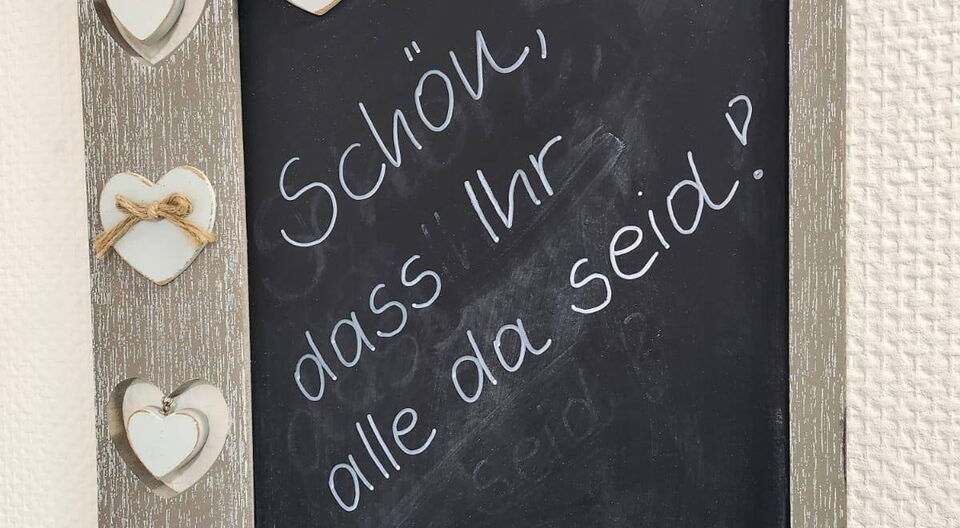 Schön,
dass Ihr
alle da seid!